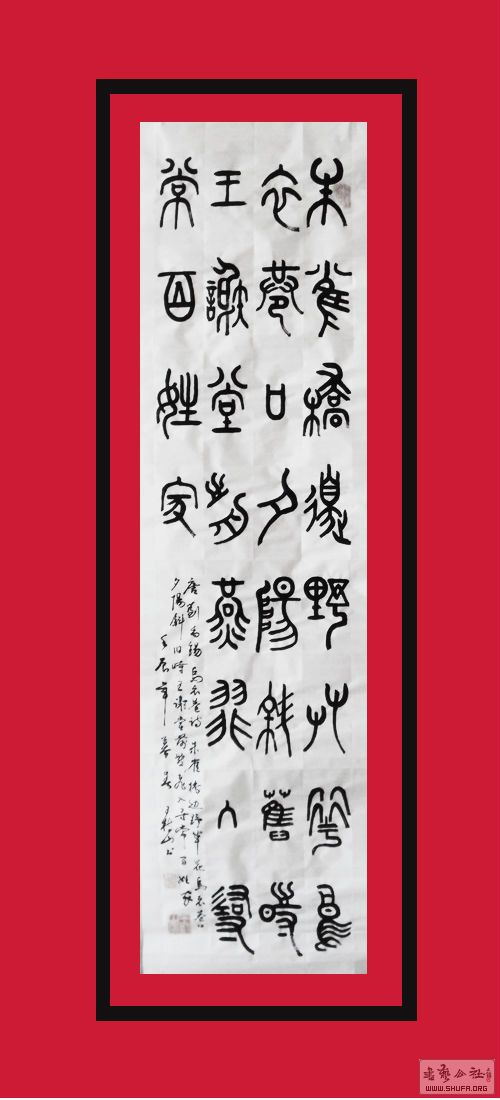 朱雀橋邊野艸華烏
衣巷口夕陽斜舊時
王謝堂前燕飛入尋
常百姓家
唐劉禹錫烏衣巷詩朱雀桥边野草花烏衣巷口
夕陽斜旧時王谢堂前燕飛入尋常百姓家
壬辰年暮春
書藝公社
WWW.SHUFA.ORG